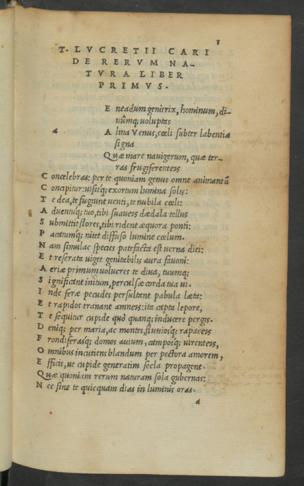 1
T. LVCRETII CARI
DE RERVM NA-
TVRA LIBER
PRIMVS.
E neadum genitrix, hominum, di-
uûmq; uoluptas
a
A lma Venus, cœli subter labentia
signa
Quæ mare nauigerum, quæ ter-
ras frugiferenteis
C oncelebras: per te quoniam genus omne animantû
C oncipitur: uisitq; exortum lumina solis:
T e dea, te fugiunt uenti, te nubila cœli:
A duentuq; tuo, tibi suaueis dædala tellus
S ubmittit flores, tibi rident æquora ponti:
P acatumq; nitet diffuso lumine cœlum.
N am simulac species patefacta est uerna diei:
E t reserata uiget genitabilis aura fauoni:
A eriæ primum uolucres te diua, tuumq;
S ignificant initum, perculsæ corda tua ui.
I nde feræ pecudes persultant pabula læta:
E t rapidos tranant amneis: ita capta lepore,
T e sequitur cupide quô quanq; inducere pergis.
D eniq; per maria, ac monteis, fluuiosq; rapaceis
F rondiferasq; domos auium, camposq; uirenteis,
O mnibus incutiens blandum per pectora amorem,
E fficis, ut cupide generatim secla propagent.
Quæ quoniam rerum naturam sola gubernas:
N ec sine te quicquam dias in luminis oras
a